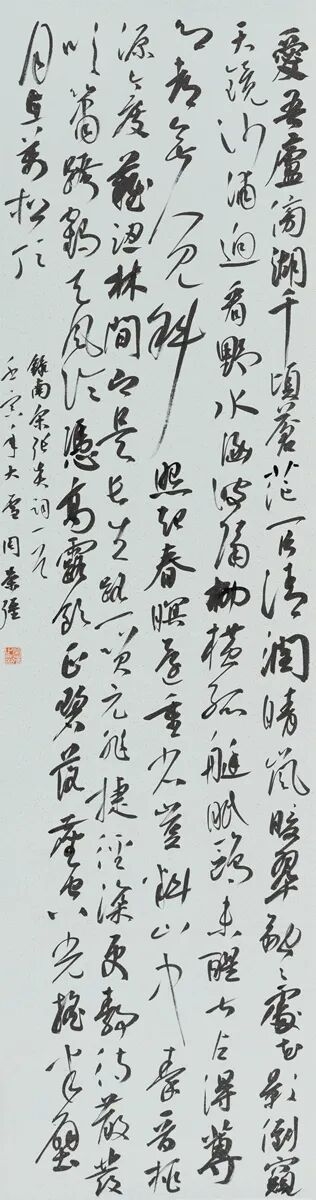 愛吾廬傍湖千頃蒼茫一片清潤晴嵐暖翠融々處花影倒窺
天鏡沙浦迥看野水涵波隔柳橫孤艇眠鷗未醒甚占得蓴
鄉都無人見斜照起春暝還重省豈料山中秦晉桃
源今度難認林間卻是長生路一笑元非捷徑深更靜待散髮
吹簫跨鶴天風冷憑高露飲正碧落塵空光搖半壁
月在萬松頂
錄南宋張炎詞一首
壬寅年大雪周